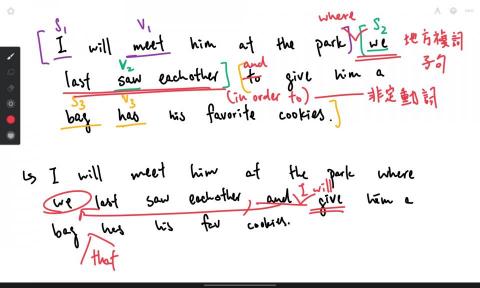 S1 V1 where S2
[I will meet him at the park] [we 地方複詞
last saw eachother] [to give him a 子句
V2 and
(in order to) 非定動詞
S3 V3
bag has his favorite cookies.]
↳ I will meet him at the park where
we last saw eachother, and I will give him a
bag has his fav cookies.
that